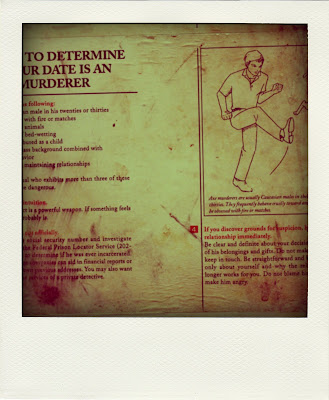 TO DETERMINE
UR DATE IS AN
MURDERER
following:
male in his twenties or thirties
with fire or matches
animals
bed-wetting
as a child
background combined with
maintaining relationships
who exhibits more than three of these
dangerous.
is a powerful weapon. If something feels
probably is
officially.
social security number and investigate
Federal Prison Locator Service (202-
to determine if he was ever incarcerated.
can aid in financial reports or
previous addresses. You may also want
services of a private detective.
Axe murderers are usually Caucasian males in their
thirties. They frequently behave cruelly toward
be obsessed with fire or matches.
4 If you discover grounds for suspicion,
relationship immediately.
Be clear and definite about your decision
of his belongings and gifts. Do not make
keep in touch. Be straightforward and
only about yourself and why the
longer works for you. Do not blame
make him angry.